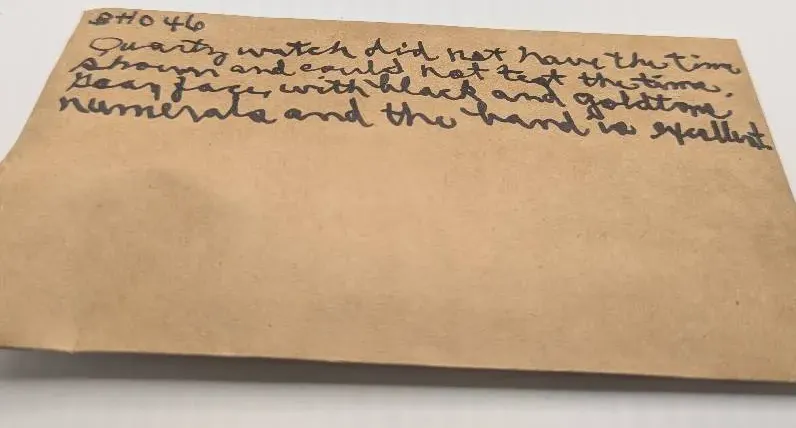 BHO 46
Quartz watch did not have the time
shown and could not test the time.
Gray face, with black and goldtone
numerals and the band is excellent.